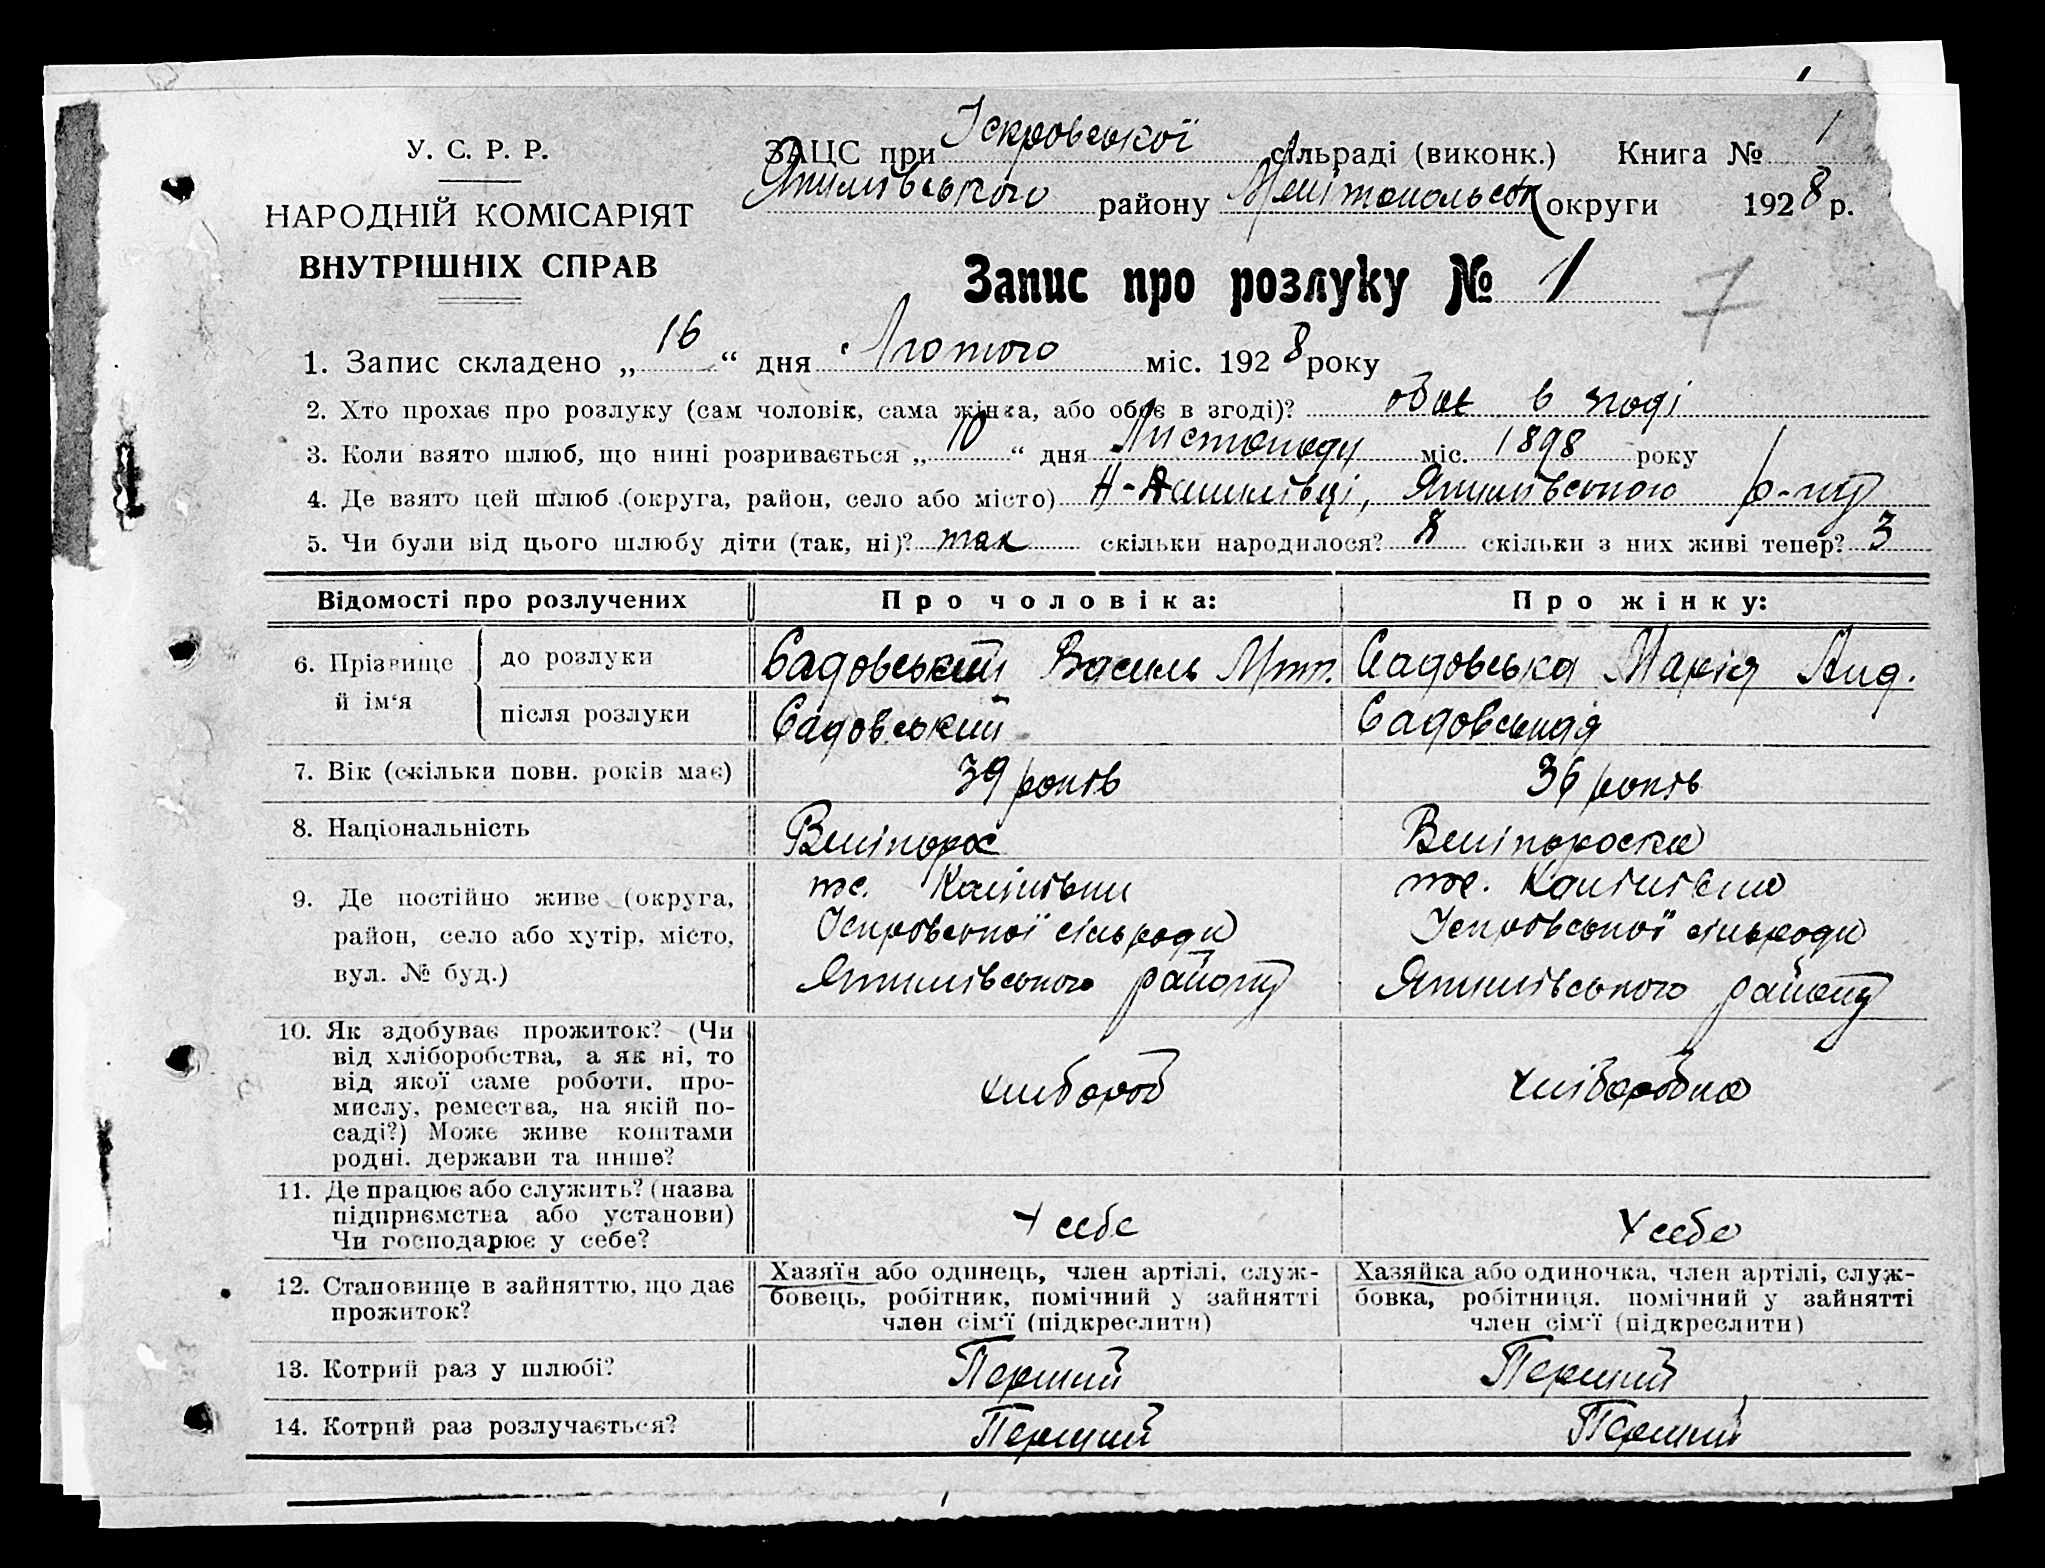 1
У. С. Р. Р.
НАРОДНІЙ КОМІСАРІЯТ
ВНУТРІШНІХ СПРАВ
ЗАЦС при Іскровської сільраді (виконк.) Книга № 1
Якимівського району Мелітопольськ округи 1928 р.
Запис про розлуку № 1
7
1. Запис складено „16“ дня Лютого міс. 1928 року
2. Хто прохає про розлуку (сам чоловік, сама жінка, або обоє в згоді)? обоє в згоді
3. Коли взято шлюб, що нині розривається „10“ дня Листопаду міс. 1898 року
4. Де взято цей шлюб (округа, район, село або місто) Якимівського р-ну
5. Чи були від цього шлюбу діти (так, ні)? так скільки народилося? 8 скільки з них живі тепер? 3
Відомості про розлучених
Про чоловіка:
Про жінку:
6. Прізвище й ім‘я
до розлуки
Садовський Василь Мит.
Садовська Марія Анд.
після розлуки
Садовський
Садовська
7. Вік (скільки повн. років має)
39 років
36 років
8. Національність
Велікорос
Велікороска
9. Де постійно живе (округа,
район, село або хутір, місто,
вул. № буд.)
Іскровської сільради
Якимівського району
Іскровської сільради
Якимівського району
10. Як здобуває прожиток? (Чи
від хліборобства, а як ні, то
від якої саме роботи, про-
мислу, ремества, на якій по-
саді?) Може живе коштами
родні, держави та инше?
хлібороб
хліборобка
11. Де працює або служить? (назва
підприємства або установи)
Чи господарює у себе?
У себе
У себе
12. Становище в зайняттю, що дає
прожиток?
Хазяїн або одинець, член артілі, служ-
бовець, робітник, помічний у зайнятті
член сім‘ї (підкреслити)
Хазяйка або одиночка, член артілі, служ-
бовка, робітниця, помічний у зайнятті
член сім‘ї (підкреслити)
13. Котрий раз у шлюбі?
Перший
Перший
14. Котрий раз розлучається?
Перший
Перший